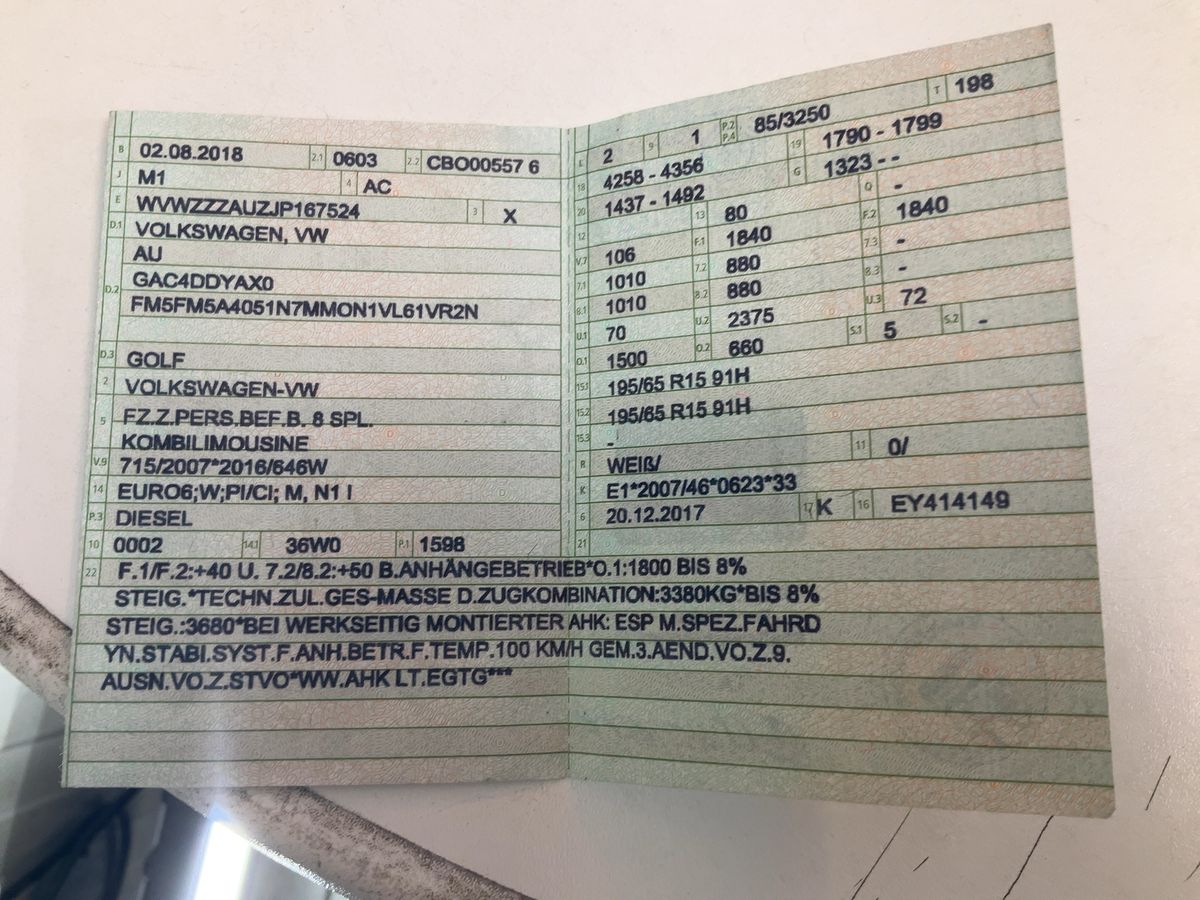 B 02.08.2018 2.1 0603 2.2 CBO00557 6
J M1 4 AC
E WVWZZZAUZJP167524 3 X
D.1 VOLKSWAGEN, VW
AU
D.2 GAC4DDYAX0
FM5FM5A4051N7MMON1VL61VR2N
D.3 GOLF
2 VOLKSWAGEN-VW
5 FZ.Z.PERS.BEF.B. 8 SPL.
KOMBILIMOUSINE
V.9 715/2007*2016/646W
14 EURO6;W;PI/CI; M, N1 I
P.3 DIESEL
10 0002 14.1 36W0 P.1 1598
L 2 9 1 P.2 P.4 85/3250 T 198
18 4258 - 4356 19 1790 - 1799
20 1437 - 1492 G 1323 - -
12 13 80 Q -
V.7 106 F.1 1840 F.2 1840
7.1 1010 7.2 880 7.3 -
8.1 1010 8.2 880 8.3 -
U.1 70 U.2 2375 U.3 72
O.1 1500 O.2 660 S.1 5 S.2 -
15.1 195/65 R15 91H
15.2 195/65 R15 91H
15.3 -
R WEIß/ 11 0/
K E1*2007/46*0623*33
6 20.12.2017 17 K 16 EY414149
21
22 F.1/F.2:+40 U. 7.2/8.2:+50 B.ANHÄNGEBETRIEB*O.1:1800 BIS 8%
STEIG.*TECHN.ZUL.GES-MASSE D.ZUGKOMBINATION:3380KG*BIS 8%
STEIG.:3680*BEI WERKSEITIG MONTIERTER AHK: ESP M.SPEZ.FAHRD
YN.STABI.SYST.F.ANH.BETR.F.TEMP.100 KM/H GEM.3.AEND.VO.Z.9.
AUSN.VO.Z.STVO*WW.AHK LT.EGTG***